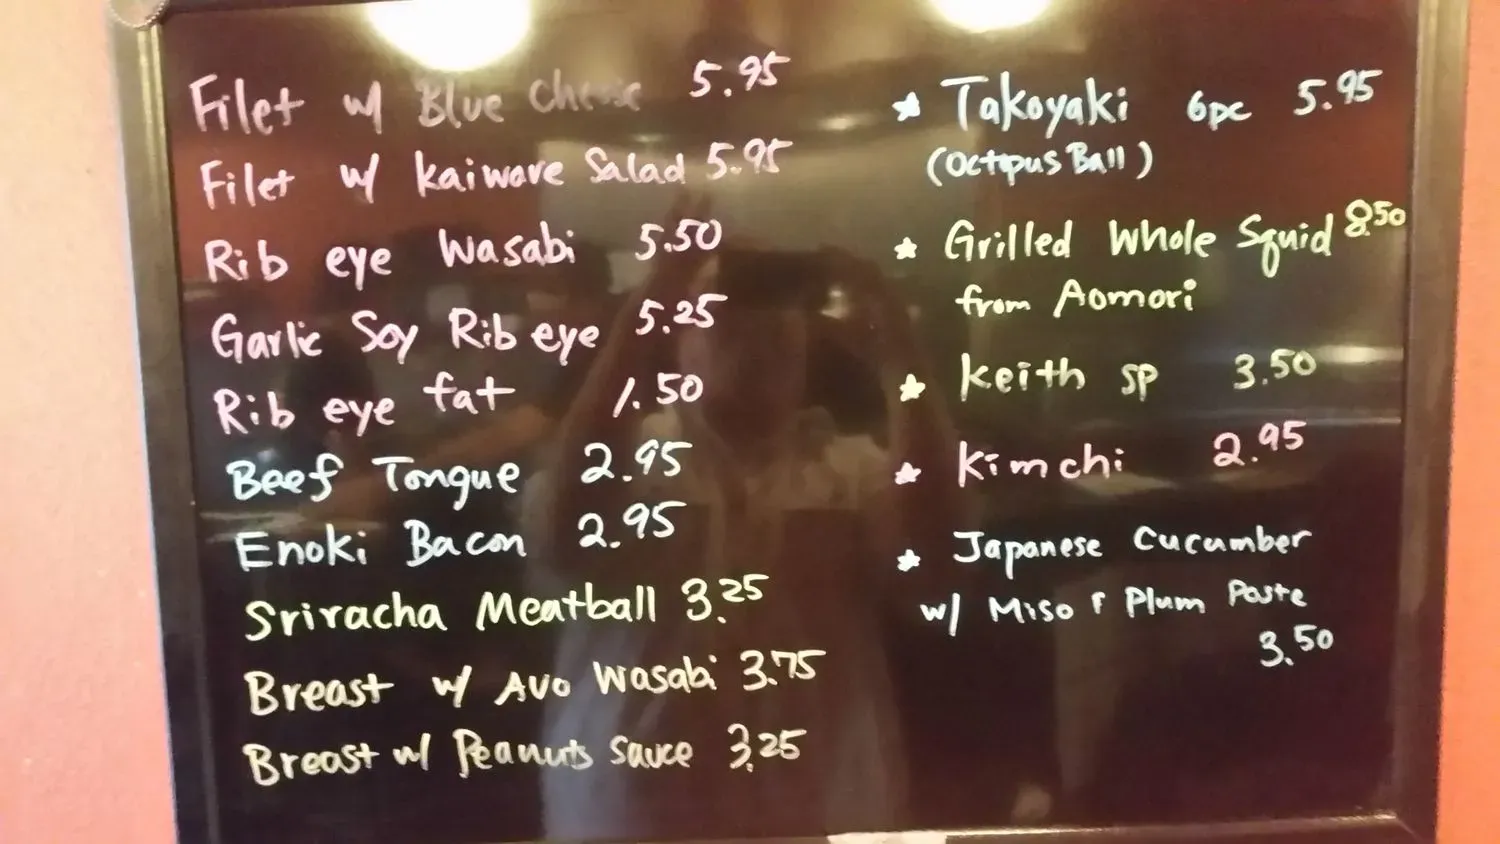 Filet w/ Blue Cheese 5.95
Filet w/ Kaiware Salad 5.95
Rib eye Wasabi 5.50
Garlic Soy Rib eye 5.25
Rib eye fat 1.50
Beef Tongue 2.95
Enoki Bacon 2.95
Sriracha Meatball 3.25
Breast w/ Avo Wasabi 3.75
Breast w/ Peanuts Sauce 3.25
★ Takoyaki 6pc 5.95
(Octopus Ball)
★ Grilled Whole Squid 8.50
from Aomori
★ Keith sp 3.50
★ Kimchi 2.95
★ Japanese Cucumber
w/ Miso & Plum Paste
3.50